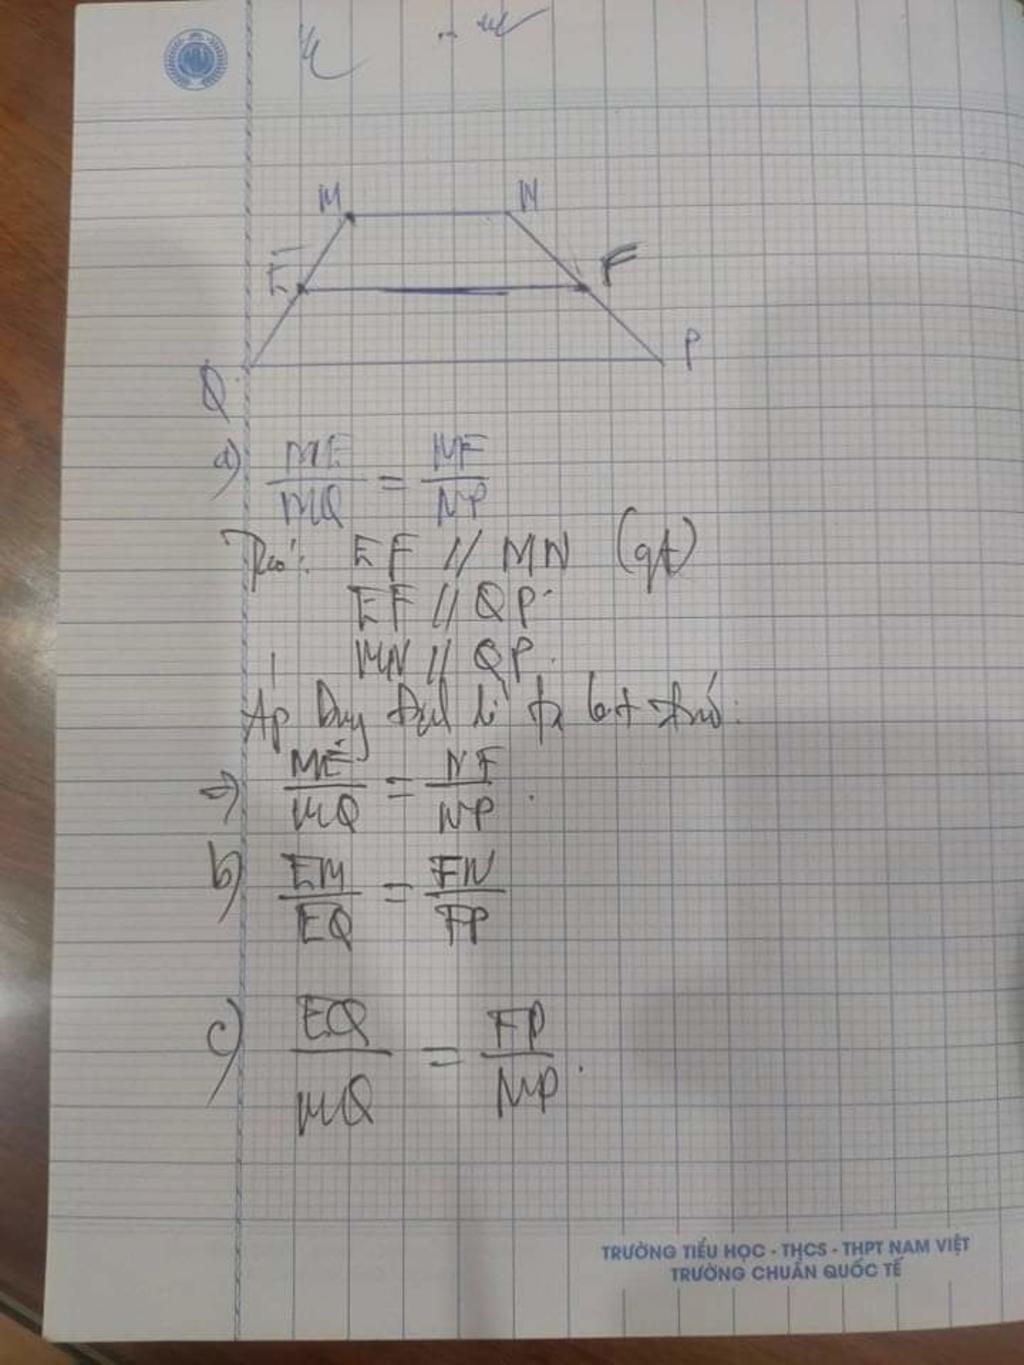 M N
E F
Q P
a) ME/MQ = NF/NP
EF // MN (gt)
EF // QP
MN // QP.
Áp lí
=> ME/MQ = NF/NP.
b) EM/EQ = FN/FP
c) EQ/MQ = FP/NP.
TRƯỜNG TIỂU HỌC - THCS - THPT NAM VIỆT
TRƯỜNG CHUẨN QUỐC TẾ